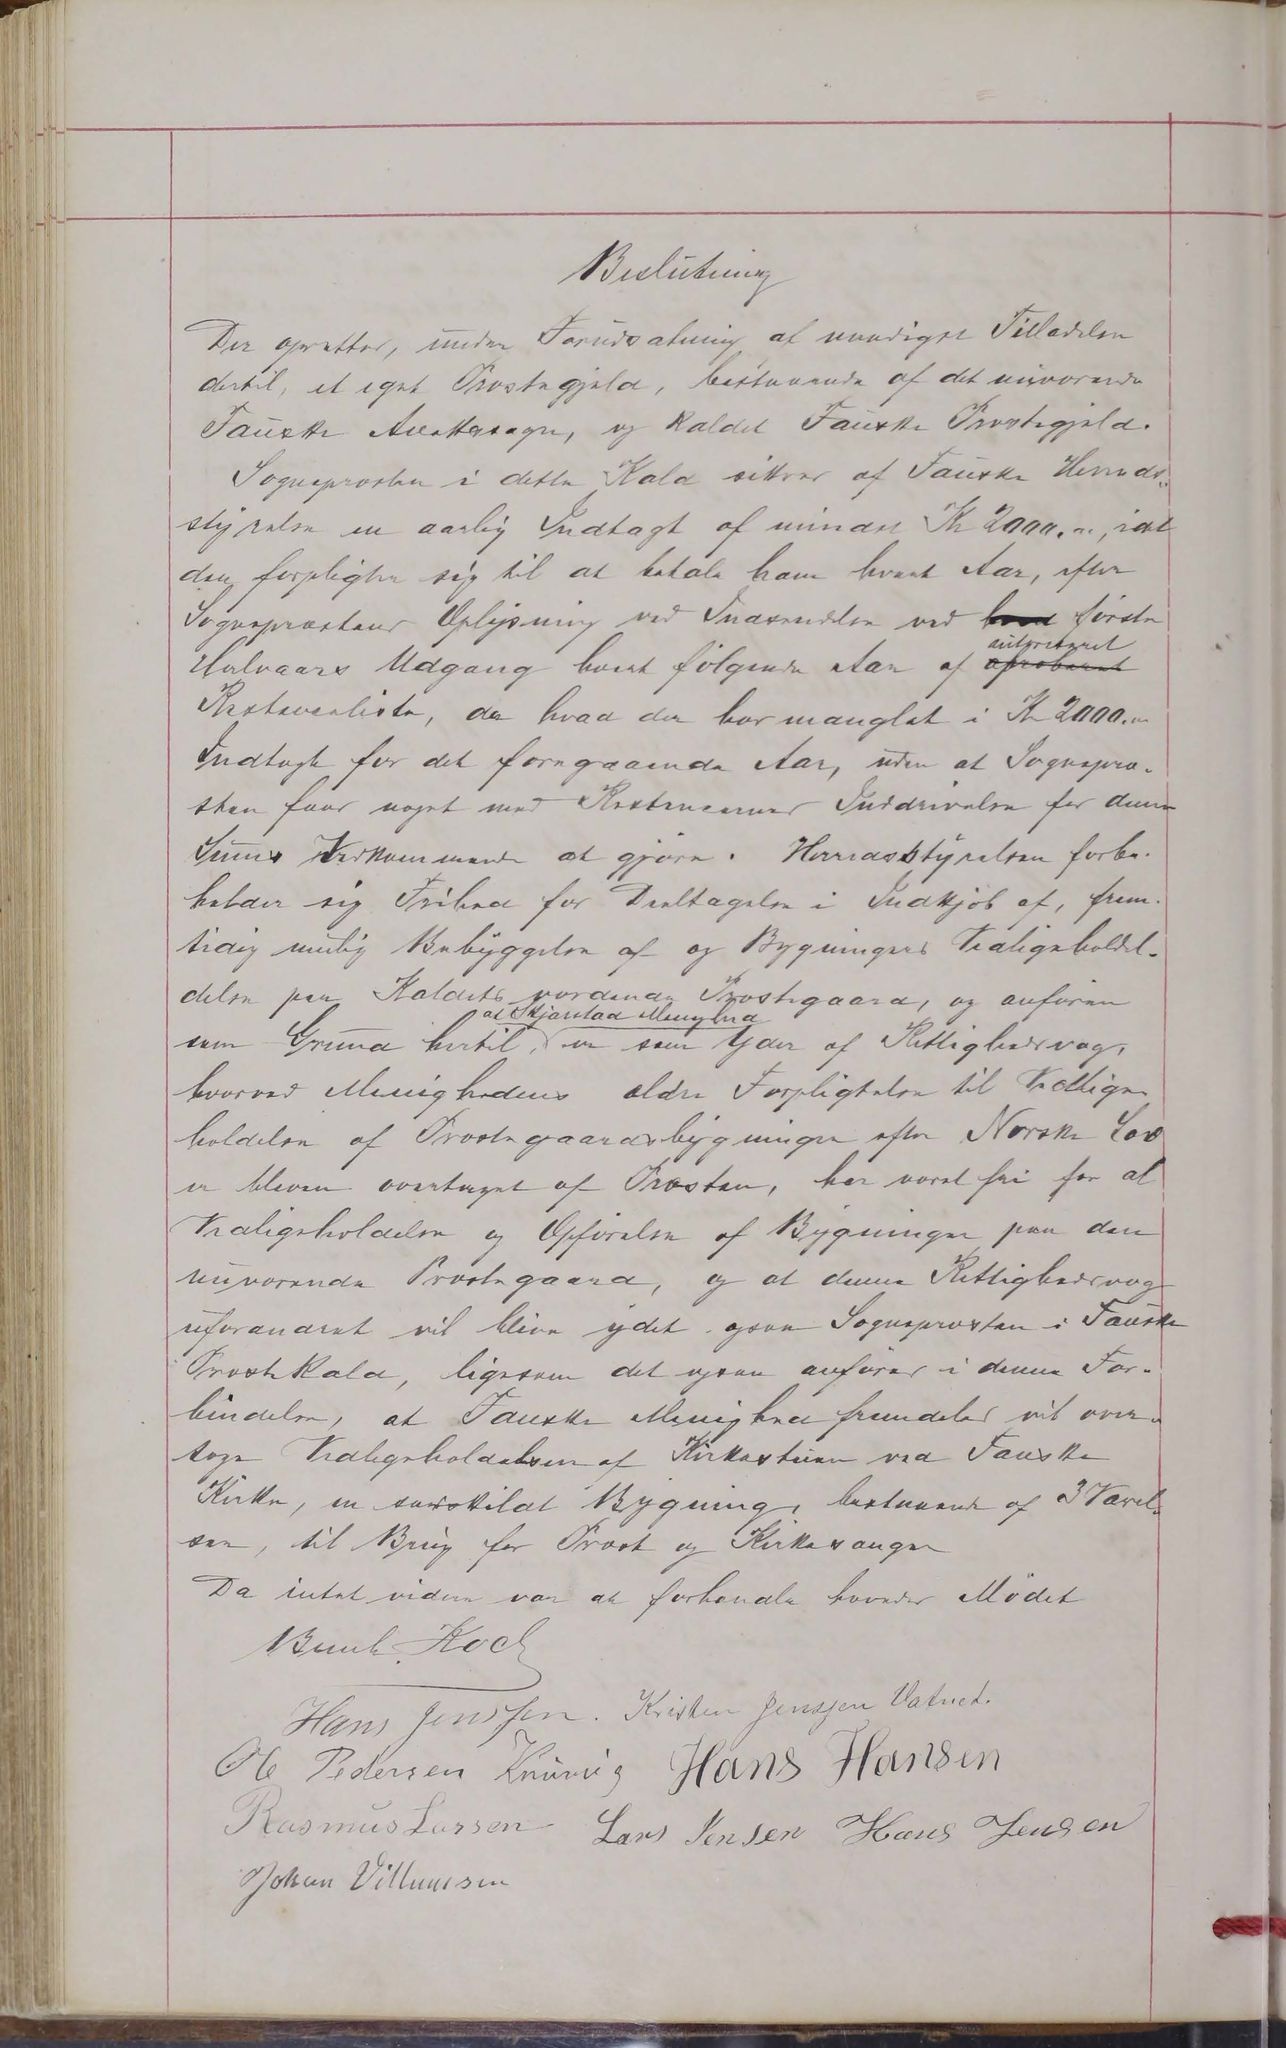 Beslutning
Der oprettes, under Forudsætning af naadigst Tilladelse
dertil, et eget Præstegjeld, bestaaende af det nuværende
Fauske Annexsogn, og kaldet Fauske Præstegjeld.
Sognepræsten i dette Kald sikkres af Fauske Herreds-
styrelse en aarlig Indtægt af mindst Kr 2000.00, idet
den forpligter sig til at betale ham hvert Aar, efter
Sognepræstens Oplysning ved Indsendelse ved hvert første
Halvaars Udgang hvert følgende Aar af autoriseret aproberet
Restanceliste, da hvad der har manglet i Kr 2000.00
Indtægt for det foregaaende Aar, uden at Sognepræ-
sten faar noget med Restancernes Inddrivelse for denne
Sums Vedkommende at gjøre. Herredsstyrelsen forbe-
holder sig Frihed for Deeltagelse i Indkjøb af, frem-
tidig mulig Bebyggelse af og Bygningers Vedligeholdel-
delse paa Kaldets vordende Præstegaard, og anføres
som Grund hertil, at Skjerstad Menighed er som Yder af Rettighedsvog,
hvorved Menighedens ældre Forpligtelse til Vedlige-
holdelse af Præstegaardsbygninger efter Norske Lov
er bleven overtaget af Præsten, har været fri for al
Vedligeholdelse og Opførelse af Bygninger paa den
nuværende Præstegaard, og at denne Rettighedsvog
uforandret vil blive ydet ogsaa Sognepræsten i Fauske
Præstekald, ligesom det ogsaa anføres i denne For-
bindelse, at Fauske Menighed fremdeles vil over-
tage Vedligeholdelsen af Kirkestuen ved Fauske
Kirke, en særskildt Bygning, bestaaende af 3 Værel-
ser, til Brug for Præst og Kirkesanger
Da intet videre var at forhandle hævedes Mødet
Bernh. Koch
Hans Jenssen. Kristen Jenssen Vatned.
Ole Pedersen Hans Hansen
Rasmus Larsen Lars Jensen Hans Jensen
Johan Villumsen